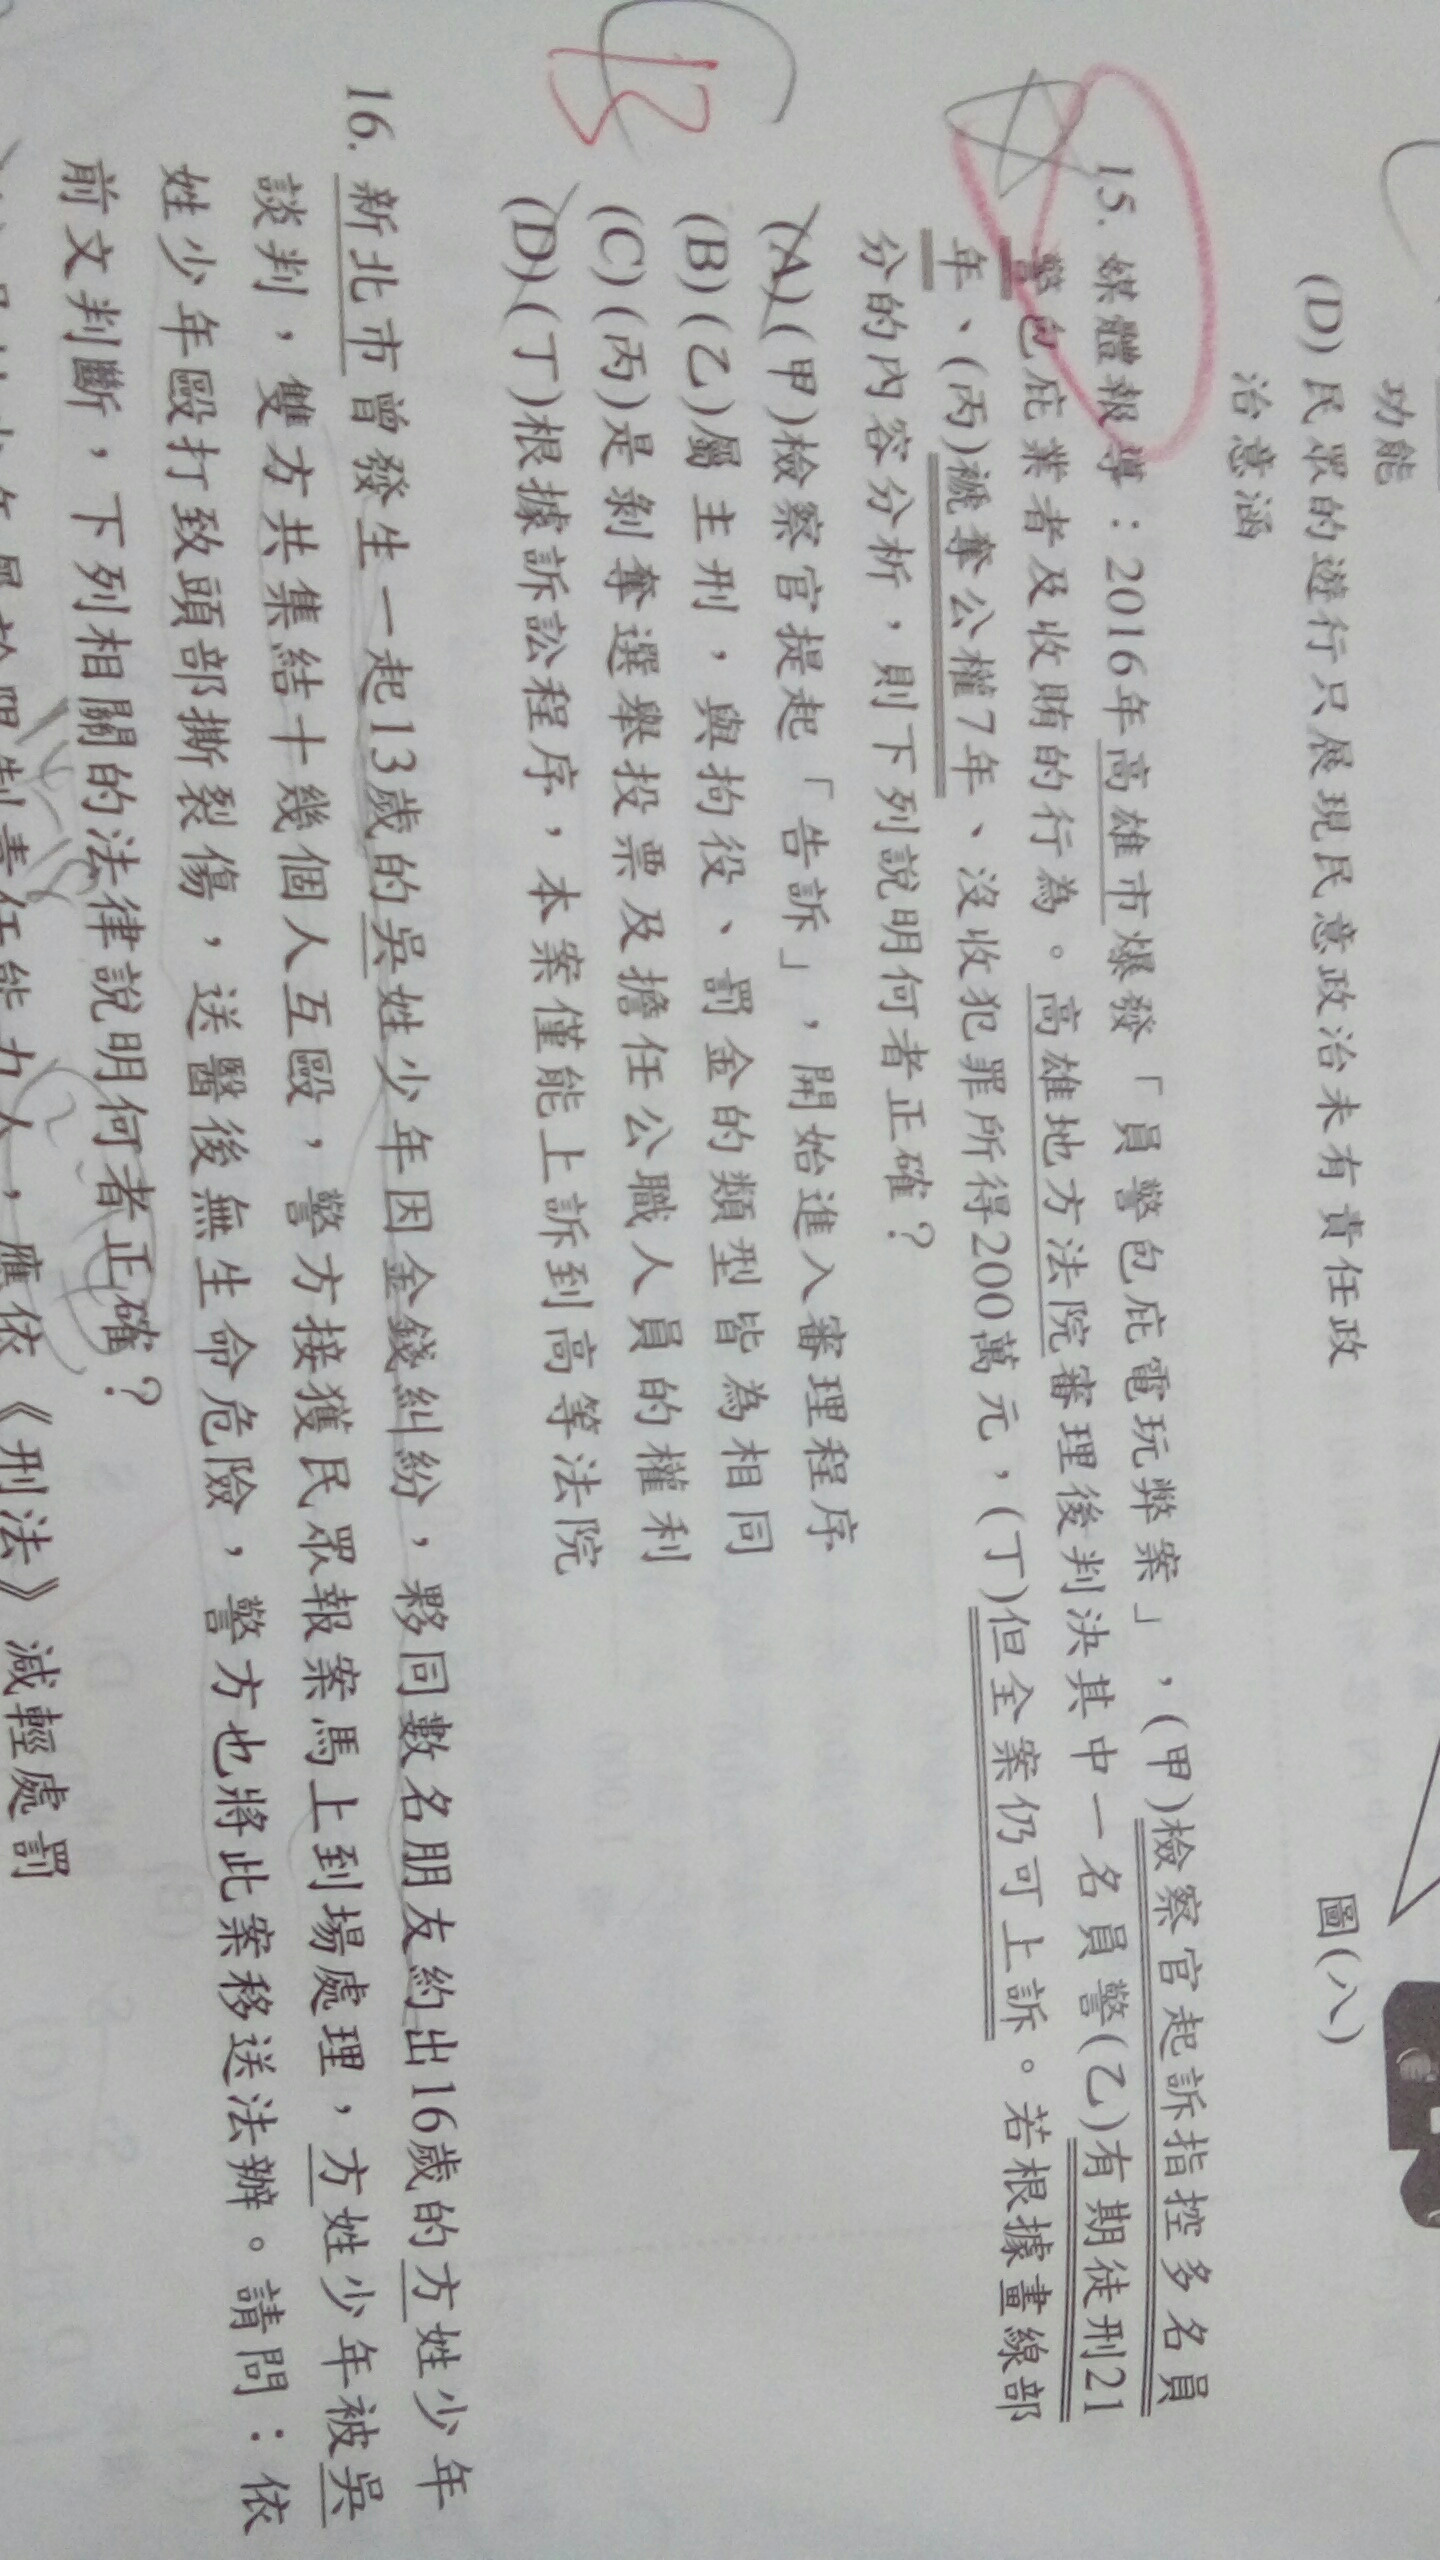 功能
(D)民眾的遊行只展現民意政治未有責任政
治意涵
圖(八)
15. 媒體報導：2016年高雄市爆發「員警包庇電玩弊案」，(甲)檢察官起訴指控多名員
警包庇業者及收賄的行為。高雄地方法院審理後判決其中一名員警(乙)有期徒刑21
年、(丙)褫奪公權7年、沒收犯罪所得200萬元，(丁)但全案仍可上訴。若根據畫線部
分的內容分析，則下列說明何者正確？
(A)(甲)檢察官提起「告訴」，開始進入審理程序
(B)(乙)屬主刑，與拘役、罰金的類型皆為相同
(C)(丙)是剝奪選舉投票及擔任公職人員的權利
(D)(丁)根據訴訟程序，本案僅能上訴到高等法院
B
16. 新北市曾發生一起13歲的吳姓少年因金錢糾紛，夥同數名朋友約出16歲的方姓少年
談判，雙方共集結十幾個人互毆，警方接獲民眾報案馬上到場處理，方姓少年被吳
姓少年毆打致頭部撕裂傷，送醫後無生命危險，警方也將此案移送法辦。請問：依
前文判斷，下列相關的法律說明何者正確？
限制責任能力人，應依《刑法》減輕處罰